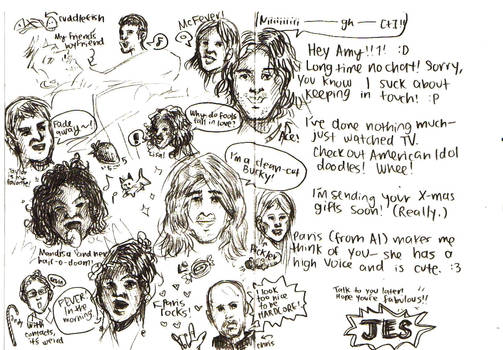 cuddlefish
My friends
boyfriend
McFever!
Niiiiiiiii — gh — CtI!!
Hey Amy!!1! :D
Long time no chat! Sorry,
you know I suck about
keeping in touch! :P
I've done nothing much-
just watched TV.
check out American Idol
doodles! Whee!
I'm sending your X-mas
gifts soon! (Really.)
Paris (from AI) makes me
think of you- she has a
high voice and is cute. :3
Talk to you later!
Hope you're fabulous!!
JES
Fade
away~!
Taylor is my
favorite!
Why do fools
fall in love?
Lisa!
Ace!
I'm a clean-cut
Bucky!
Mandisa and her
hair-o-doom!
Pickler
With
contacts,
it's weird
FEVER
in the
morning
Paris
rocks!
I look
too nice
to be
HARDCORE!
chris